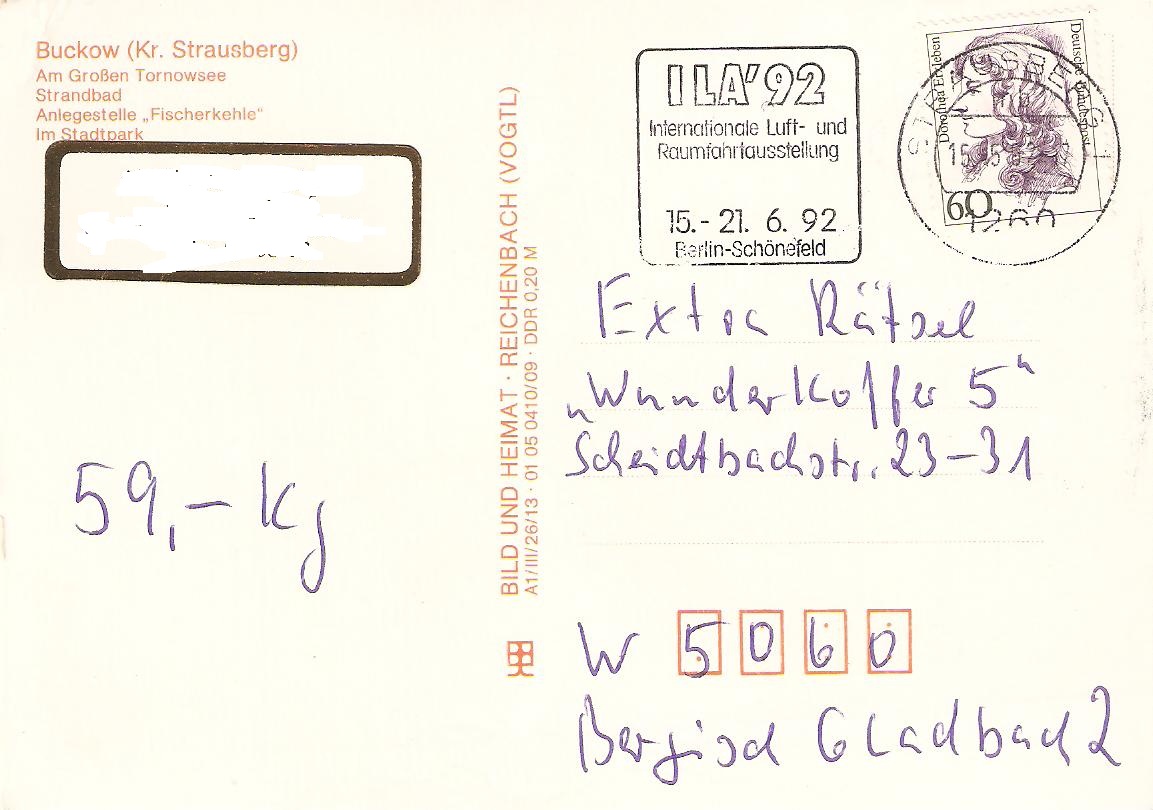 Buckow (Kr. Strausberg)
Am Großen Tornowsee
Strandbad
Anlegestelle „Fischerkehle"
Im Stadtpark
59,- kg
BILD UND HEIMAT · REICHENBACH (VOGTL)
A1/III/26/13 · 01 05 0410/09 · DDR 0,20 M
ILA'92
Internationale Luft- und
Raumfahrtausstellung
15.-21. 6. 92
Berlin-Schönefeld
Dorothea Erxleben
Deutsche Bundespost
60
STRAUSBERG 1
1260
Extra Rätsel
„Wunderkoffer 5"
Scheidtbachstr. 23-31
W 5060
Bergisch Gladbach 2